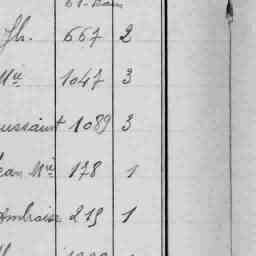 Jh. 667 2
Mie 1047 3
oussaint 1089 3
ean Mie 178 1
Ambroise 215 1